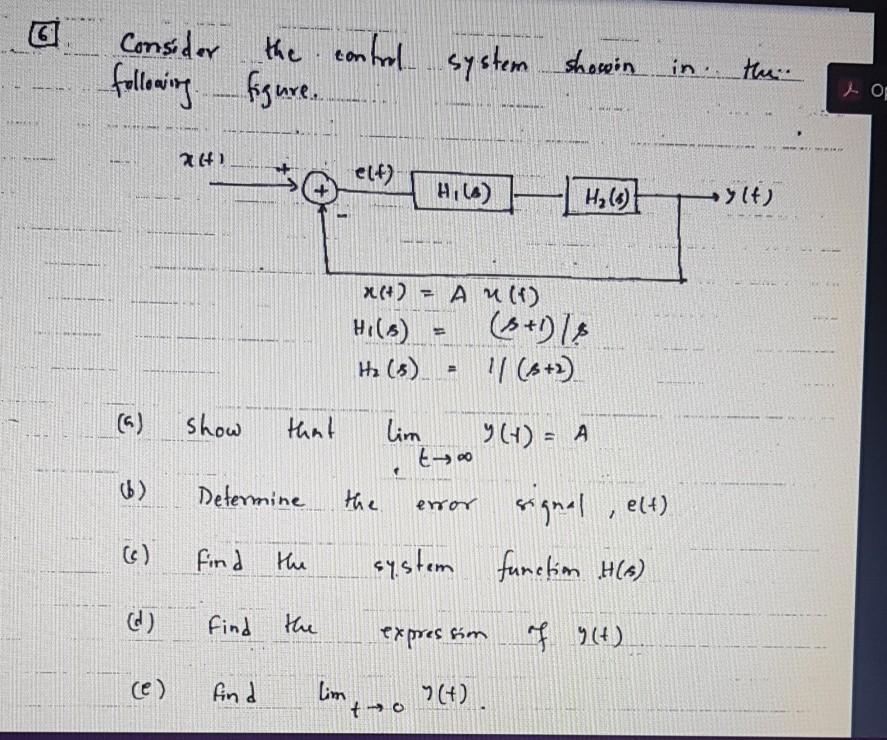 6 Consider the control system showin in the
following figure.
Op
x(t) + e(t) + H₁(s) H₂(s) y(t)
-
x(t) = A u(t)
H₁(s) = (s+1)/s
H₂(s) = 1/(s+2)
(a) show that lim t→∞ y(t) = A
(b) Determine the error signal, e(t)
(c) Find the system function H(s)
(d) Find the expression of y(t)
(e) find lim t→0 y(t).